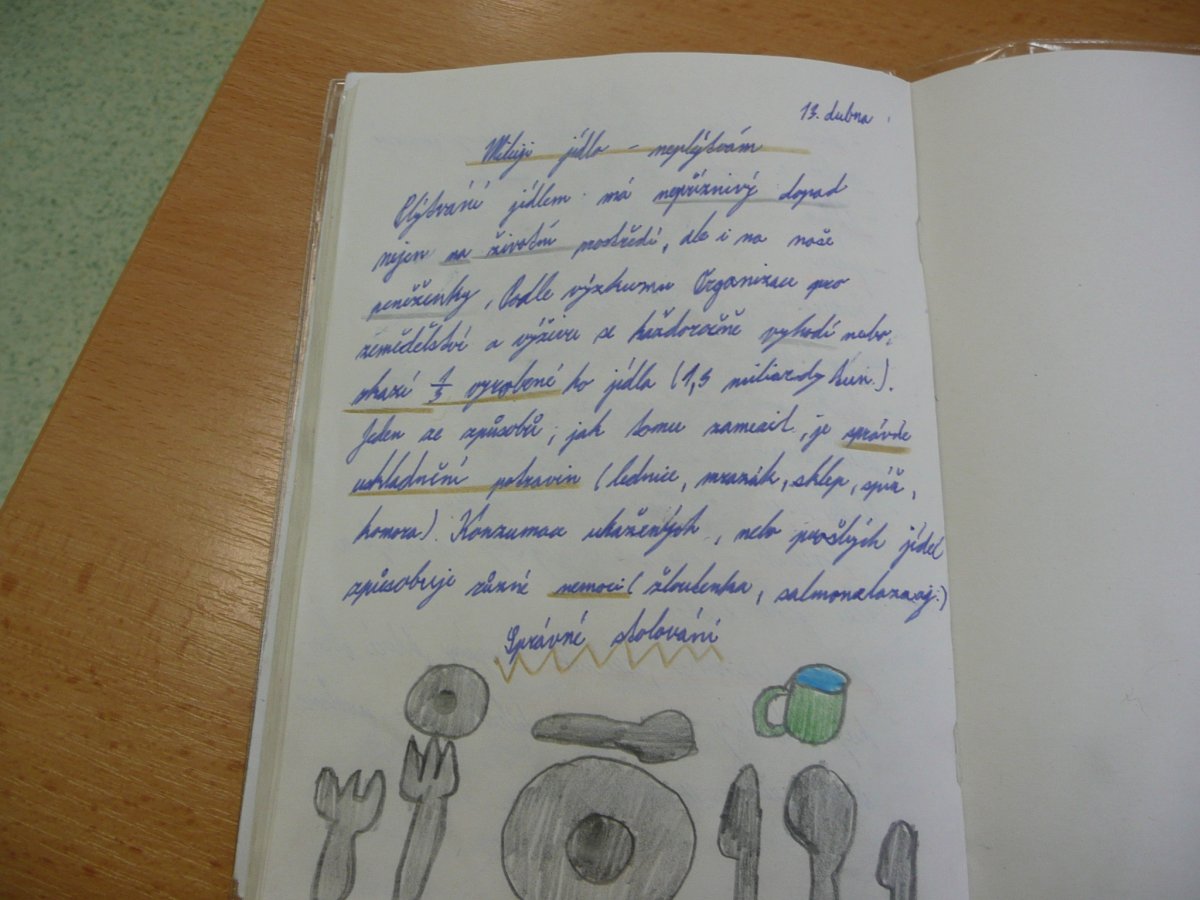 13. dubna
Miluji jídlo - neplýtvám
Plýtvání jídlem má nepříznivý dopad
nejen na životní prostředí, ale i na naše
peněženky. Podle výzkumu Organizace pro
zemědělství a výživu se každoročně vyhodí nebo
zkazí 1/3 vyrobeného jídla (1,3 miliardy tun).
Jeden ze způsobů, jak tomu zamezit, je správné
uskladnění potravin (lednice, mrazák, sklep, spíž,
komora). Konzumace zkažených, nebo prošlých jídel
způsobuje různé nemoci (žloutenka, salmonelóza aj.)
Správné stolování